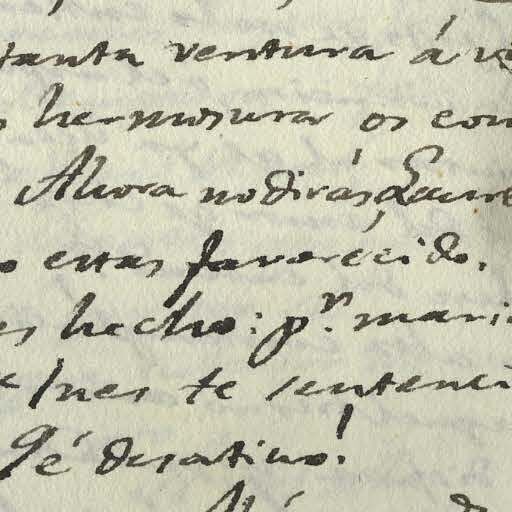 tanta ventura á
hermosuras os con
Ahora no dirás, Laure
estas favorecido.
es hecho: p.r mari
Ines te sentenci
Qé desatino!